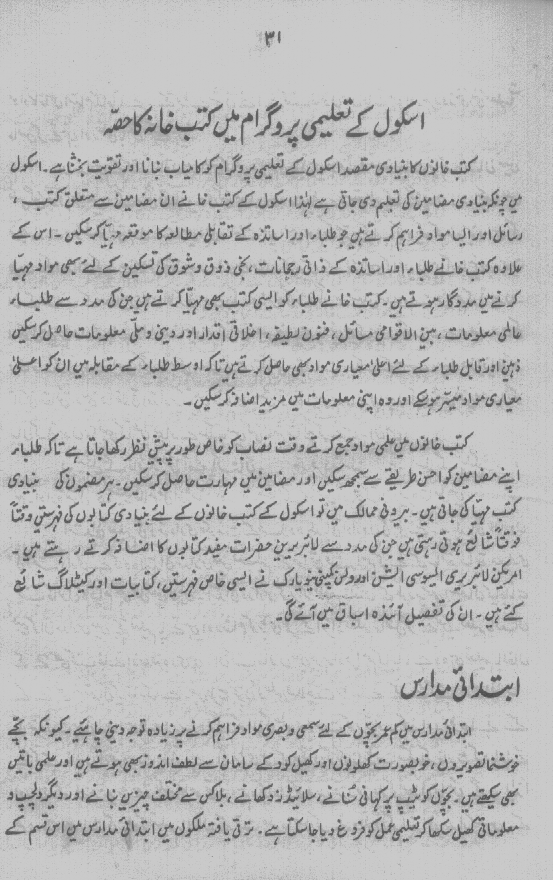 ۳۱
اسکول کے تعلیمی پروگرام میں کتب خانہ کا حصّہ
کتب خانوں کا بنیادی مقصد اسکول کے تعلیمی پروگرام کو کامیاب بنانا اور تقویت بخشنا ہے۔ اسکول
میں چونکہ بنیادی مضامین کی تعلیم دی جاتی ہے لہٰذا اسکول کے کتب خانے ان مضامین سے متعلق کتب ،
رسائل اور ایسا مواد فراہم کرتے ہیں جو طلباء اور اساتذہ کے تقابلی مطالعہ کا موقعہ مہیّا کر سکیں۔ اس کے
علاوہ کتب خانے طلباء اور اساتذہ کے ذاتی رجحانات، نجی ذوق و شوق کی تسکین کے لئے بھی مواد مہیّا
کرنے میں مددگار ہوتے ہیں۔ کتب خانے طلباء کو ایسی کتب بھی مہیّا کرتے ہیں جن کی مدد سے طلباء
عالمی معلومات، بین الاقوامی مسائل، فنون لطیفہ، اخلاقی اقدار اور دینی و ملّی معلومات حاصل کر سکیں
ذہین اور قابل طلباء کے لئے اعلیٰ معیاری مواد بھی حاصل کرتے ہیں تاکہ اوسط طلباء کے مقابلہ میں ان کو اعلیٰ
معیاری مواد میسّر ہو سکے اور وہ اپنی معلومات میں مزید اضافہ کر سکیں۔
کتب خانوں میں علمی مواد جمع کرتے وقت نصاب کو خاص طور پر پیش نظر رکھا جاتا ہے تاکہ طلباء
اپنے مضامین کو احسن طریقے سے سمجھ سکیں اور مضامین میں مہارت حاصل کر سکیں۔ ہر مضمون کی بنیادی
کتب مہیّا کی جاتی ہیں۔ بیرونی ممالک میں تو اسکول کے کتب خانوں کے لئے بنیادی کتابوں کی فہرستیں وقتاً
فوقتاً شائع ہوتی رہتی ہیں جن کی مدد سے لائبریرین حضرات مفید کتابوں کا اضافہ کرتے رہتے ہیں۔
امریکن لائبریری ایسوسی ایشن اور ولسن کمپنی نیویارک نے ایسی خاص فہرستیں، کتابیات اور کیٹلاگ شائع
کئے ہیں۔ ان کی تفصیل آئندہ اسباق میں آئے گی۔
ابتدائی مدارس
ابتدائی مدارس میں کم عمر بچّوں کے لئے سمعی و بصری مواد فراہم کرنے پر زیادہ توجہ دینی چاہئیے۔ کیونکہ بچّے
خوشنما تصویروں، خوبصورت کھلونوں اور کھیل کود کے سامان سے لطف اندوز بھی ہوتے ہیں اور علمی باتیں
بھی سیکھتے ہیں۔ بچّوں کو ٹیپ پر کہانی سُنانے، سلائیڈز دکھانے، بلاکس سے مختلف چیزیں بنانے اور دیگر دلچسپ و
معلوماتی کھیل سکھا کر تعلیمی عمل کو فروغ دیا جا سکتا ہے۔ ترقی یافتہ ملکوں میں ابتدائی مدارس میں اس قسم کے